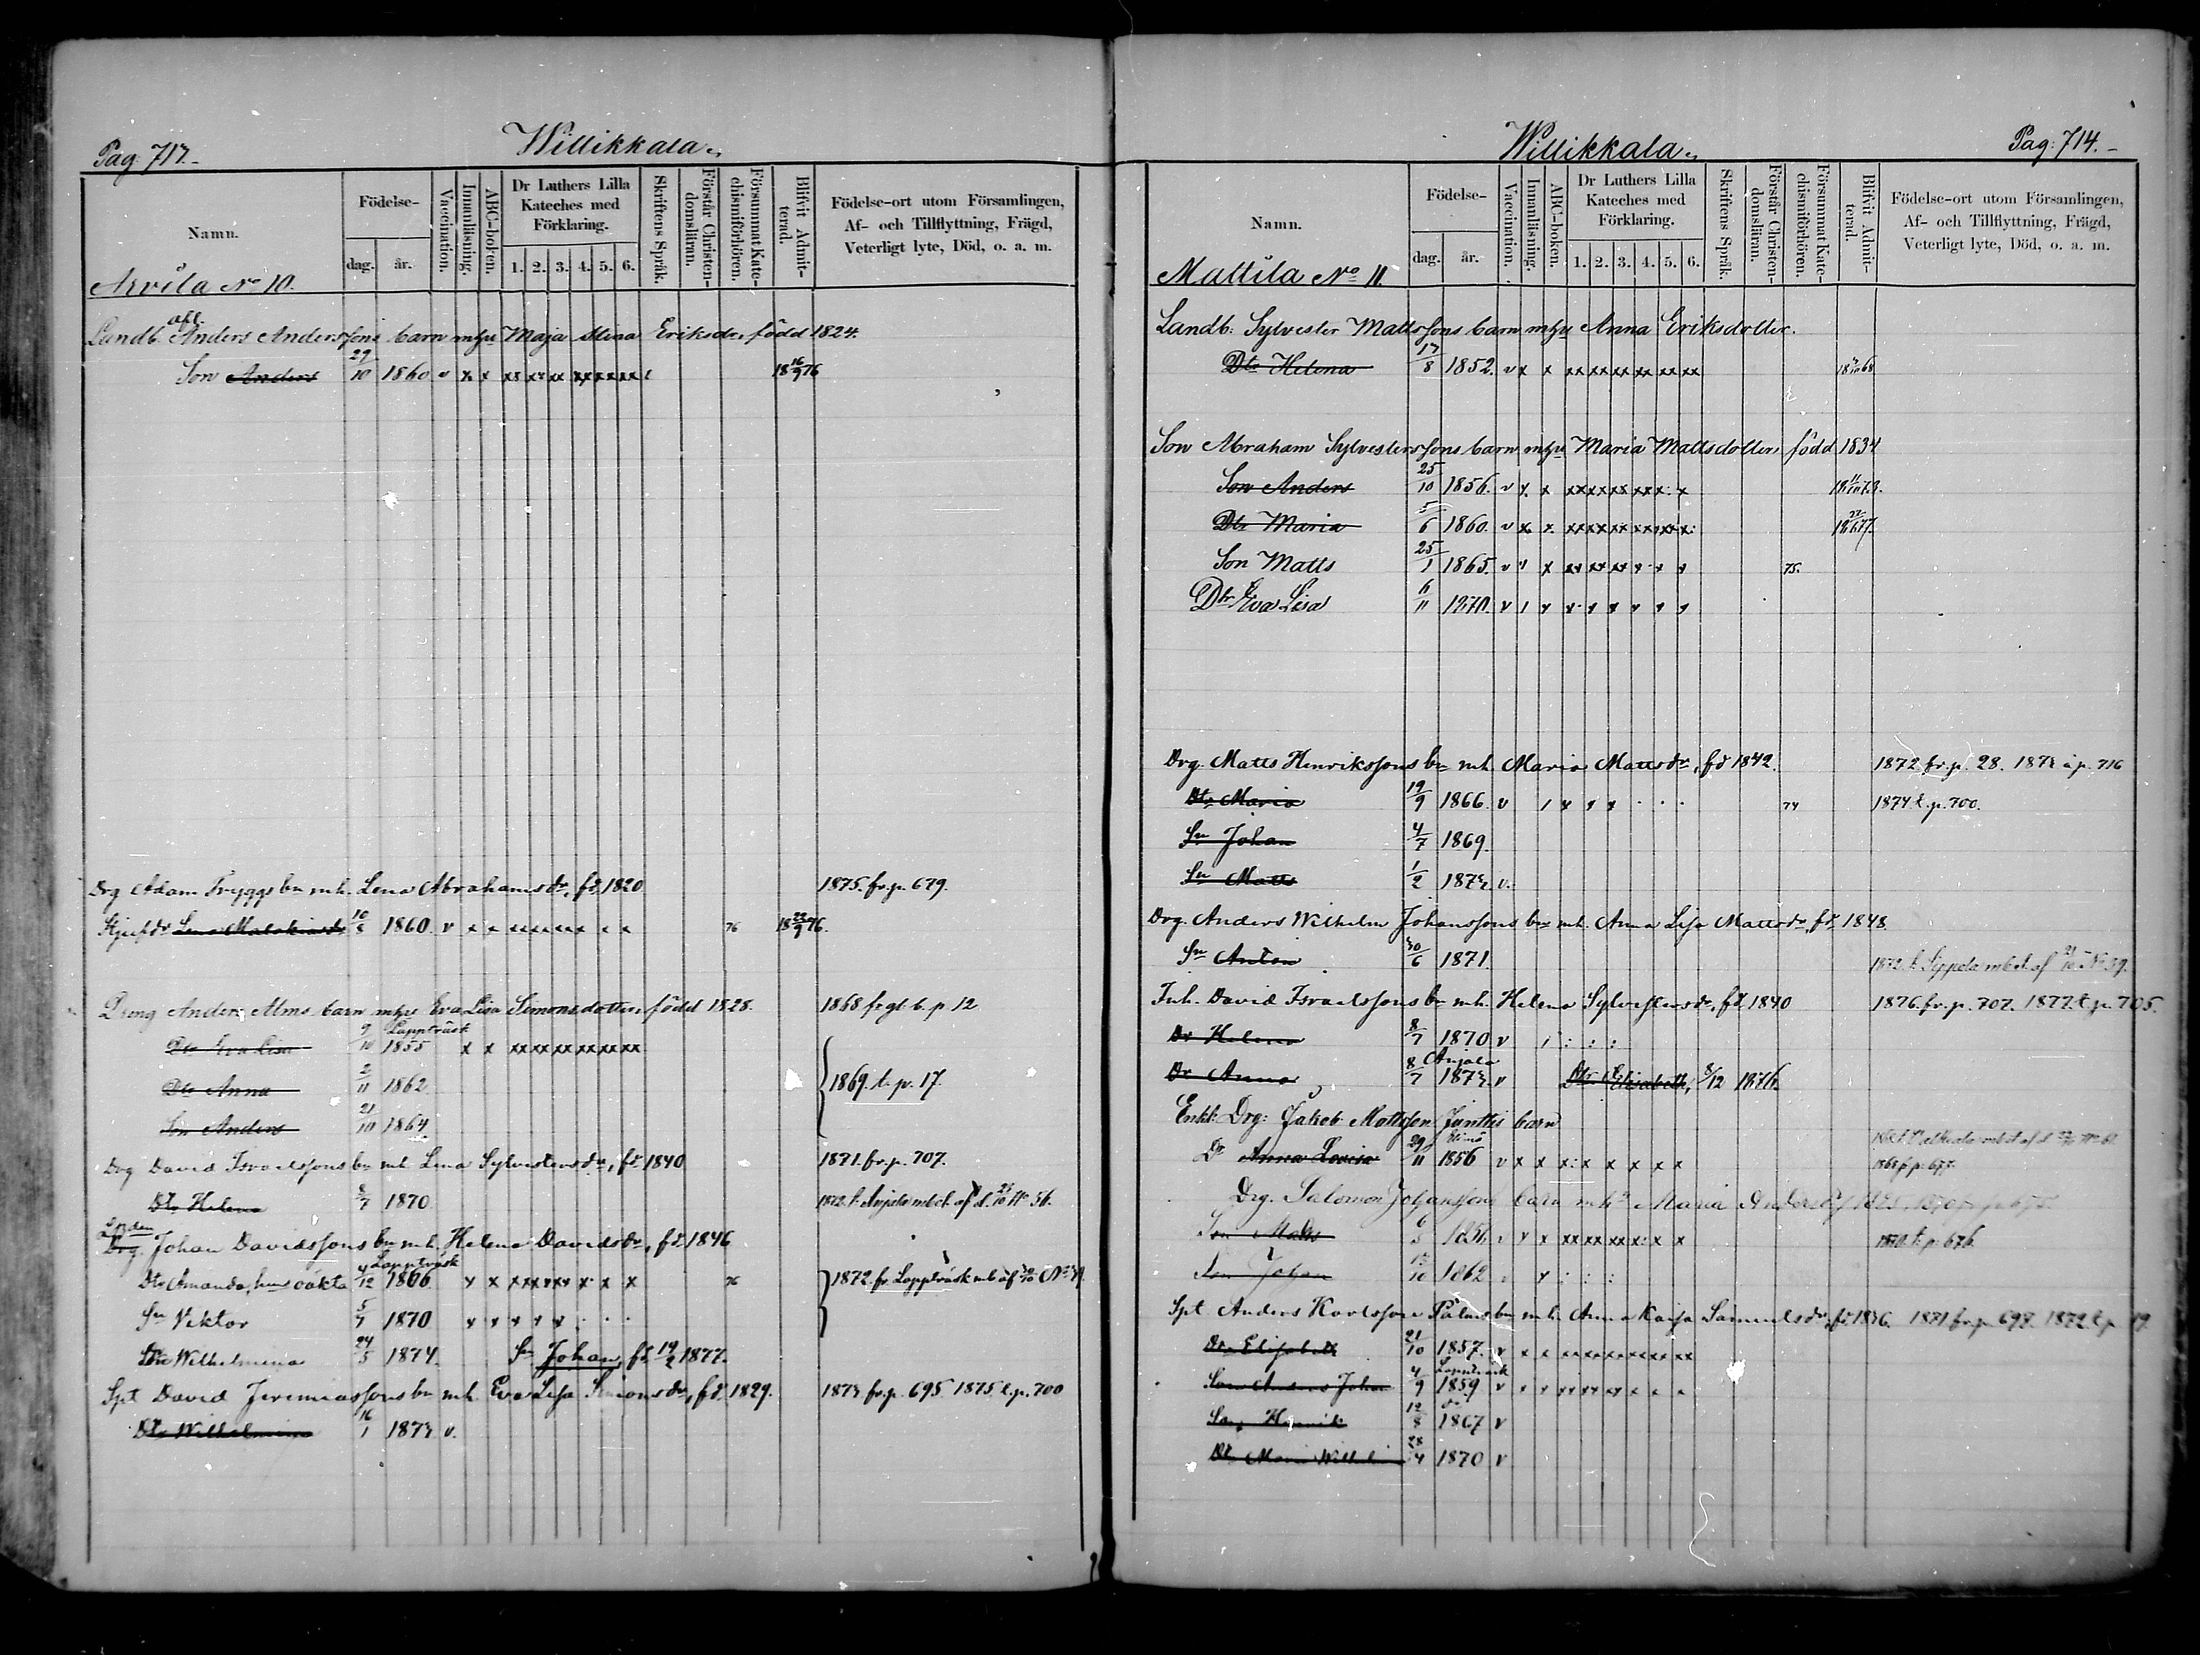 Pag. 713.
Willikkala.
Namn.
Födelse-
dag. år.
Vaccination.
Innanläsning.
ABC-boken.
Dr Luthers Lilla Kateches med Förklaring.
1. 2. 3. 4. 5. 6.
Skriftens Språk.
Förstår Christendomsläran.
Försummat Katechismiförhören.
Blifvit Admitterad.
Födelse-ort utom Församlingen, Af- och Tillflyttning, Frägd, Veterligt lyte, Död, o. a. m.
Arvila No 10.
Landb. Anders Anderssons barn mhu Maja Stina Eriksdr född 1824.
Son Anders 29/10 1860 v x x xx xx xx xx xx xx 18 16/9 76
Drg Adam Tryggs bn mh. Lena Abrahamsdr, fd. 1820 1875. fr. p. 679.
Stjufdr Lena 1860 v x x 76 18 22/9 76.
Dreng Anders Alms barn mhu Eva Lisa Simonsdotter född 1828. 1868 p 12
Dtr Eva Lisa 9/10 Lappträsk 1855 x x xx xx xx xx xx xx
Dtr Anna 2/11 1862 1869. t. p. 17.
Son Anders 21/10 1864
Drg David Israelssons bn mh Lena Sylvestersdr, fd. 1840 1871. fr. p. 707.
Dtr Helena 8/7 1870 1872. t. Anjala mbet. af d. No 56.
Drg. Johan Davidssons bn mh. Helena Davidsdr, fd. 1846
Dtr Amanda, hus oäkta 4/12 Lappträsk 1866 x x 76 1872 fr. Lappträsk
Sn Viktor 5/7 1870
Dtr Wilhelmina 24/5 1874. Sn Johan, fd. 19/2 1877.
Spt David Jeremiassons bn mh. Eva Lisa Simonsdr, fd. 1829. 1873 fr. p. 695 1875 t. p. 700
Dtr Wilhelmina 16/1 1873 v.
Willikkala.
Pag: 714.
Namn.
Födelse-
dag. år.
Vaccination.
Innanläsning.
ABC-boken.
Dr Luthers Lilla Kateches med Förklaring.
1. 2. 3. 4. 5. 6.
Skriftens Språk.
Förstår Christendomsläran.
Försummat Katechismiförhören.
Blifvit Admitterad.
Födelse-ort utom Församlingen, Af- och Tillflyttning, Frägd, Veterligt lyte, Död, o. a. m.
Mattila No 11.
Landb: Sylvester Mattssons barn mhu Anna Eriksdotter.
Dtr Helena 17/8 1852. v x x xx xx xx xx xx xx
Son Abraham Sylvesterssons barn mhu Maria Mattsdotter, född 1834
Son Anders 25/10 1856. v x x
Dtr Maria 5/6 1860. v x x
Son Matts 25/1 1865. v x x 75.
Dtr Eva Lisa 6/11 1870.
Drg. Matts Henrikssons bn mh. Maria Mattsdr, fd 1842. 1872 fr. p. 28. 1873 å p. 716
Dtr Maria 19/9 1866. v 74 1874 t. p. 700.
Sn Johan 4/7 1869.
Sn Matts 1/2 1873 v.
Drg. Anders Wilhelm Johanssons bn mh. Anna Lisa Mattsdr, fd. 1848.
Sn Anton 30/6 1871. 1872. t. Sippola mbet. af No 39.
Inh. David Israelssons bn mh. Helena Sylvestersdr, fd. 1840 1876. fr. p. 707. 1877. t. p. 705.
Dr Helena 8/7 1870 v
Dr Anna 8/7 Anjala 1873. v Dtr Elisabeth, 8/12 1876.
Enkl. Drg: Jakob Mattsson Junttis barn
Dr Anna Lovisa 29/11 1856 v x x x x x x x x
Drg. Salomon Johanssons barn mh Maria
Son Matts 6/5 1856 v x x xx xx xx x x x 1870. t. p. 676.
Son Johan 1862
Spt. Anders Karlsson Palms bn mh. Anna Kaisa Samuelsdr, fd. 1836. 1871 fr. p. 698. 1872 t. p. 19.
Dtr Elisabeth 21/10 1857. v x x
Son Anders Johan 4/9 Lappträsk 1859 v
Son Henrik 12/8 do 1867 v
Dtr Maria 28/4 1870 v